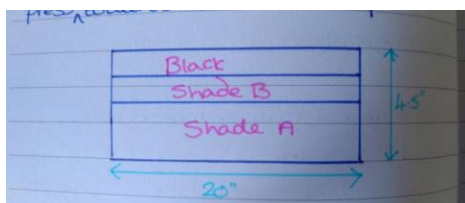 Black
Shade B
Shade A
4.5"
20"